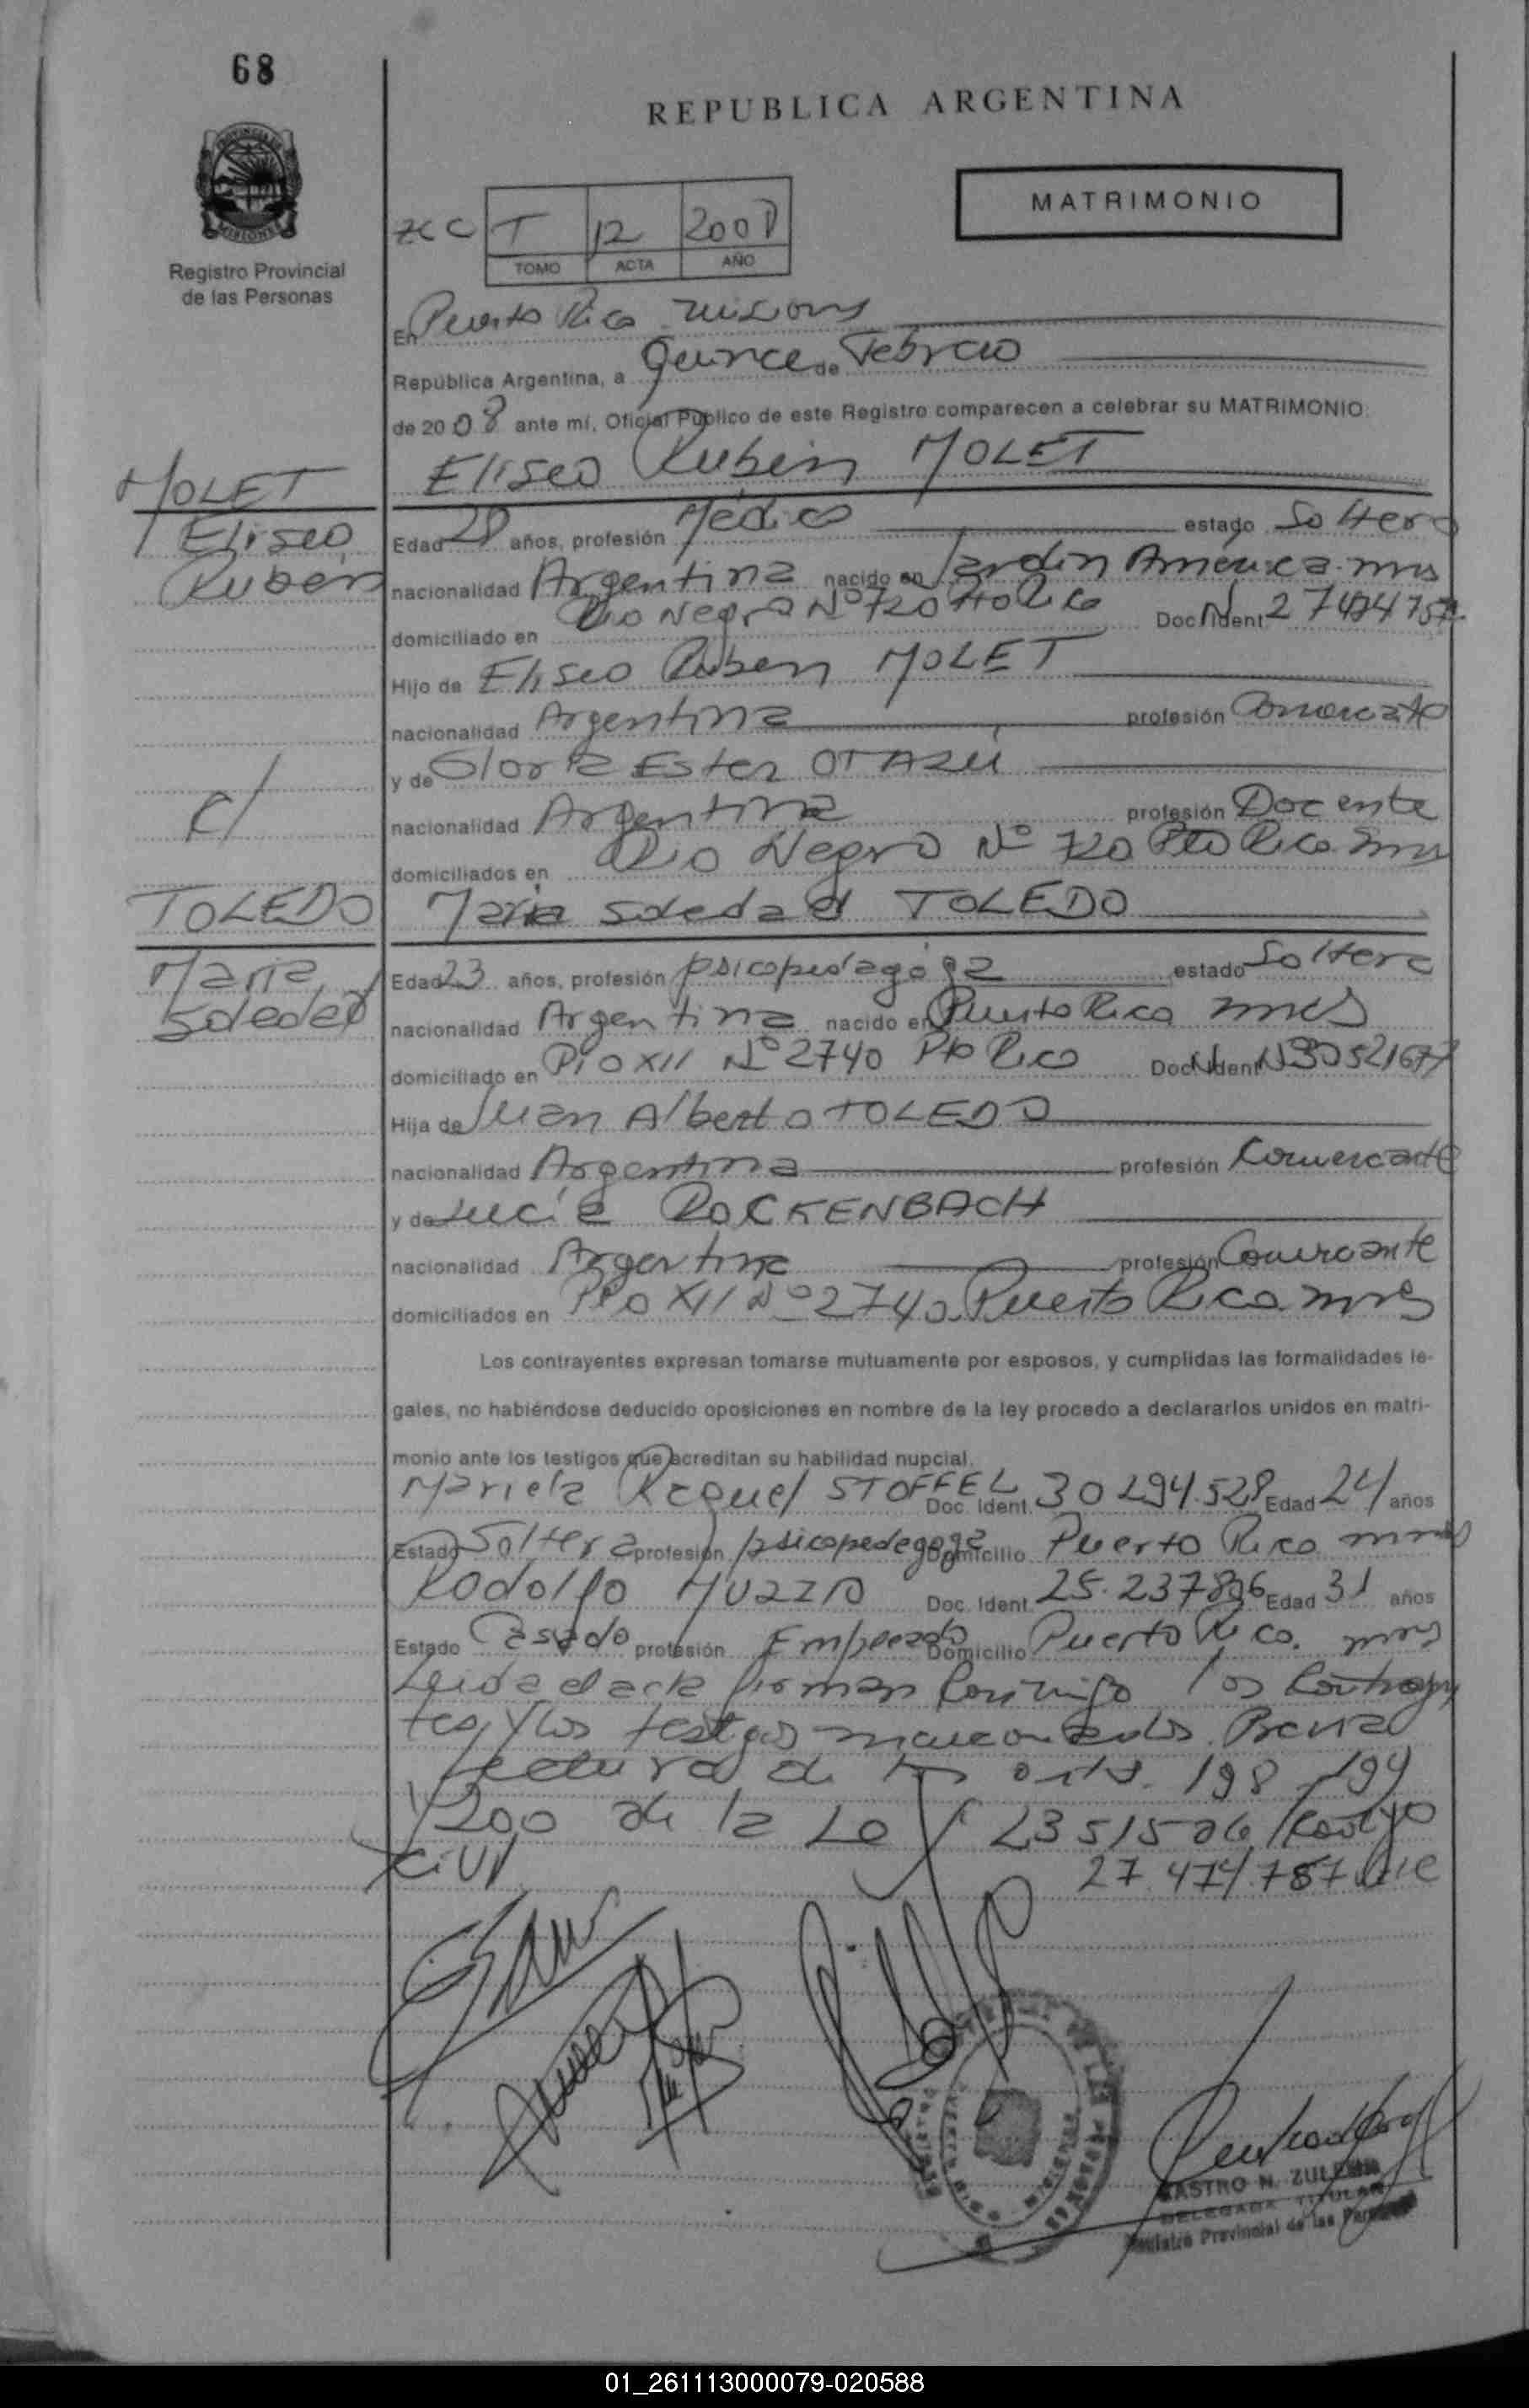 68
REPUBLICA ARGENTINA
MATRIMONIO
PROVINCIA DE
MISIONES
Registro Provincial
de las Personas
T 12 2008
TOMO ACTA AÑO
En Puerto Rico Misiones
República Argentina, a Quince de Febrero
de 2008 ante mí, Oficial Público de este Registro comparecen a celebrar su MATRIMONIO:
MOLET
Eliseo Rubén MOLET
Eliseo
Rubén
Edad 28 años, profesión Médico estado Soltero
nacionalidad Argentina nacido en Jardín América mns
domiciliado en Rio Negro Nº 720 Pto Rico Doc. Ident.
Hijo de Eliseo Ruben MOLET
nacionalidad Argentina profesión Comerciante
y de Gloria Ester OTAZÚ
c/
nacionalidad Argentina profesión Docente
domiciliados en Rio Negro Nº 720 Pto Rico mns
TOLEDO
Maria Soledad TOLEDO
Maria
Soledad
Edad 23 años, profesión psicopedagoga estado Soltera
nacionalidad Argentina nacido en Puerto Rico mnes
domiciliado en Pio XII Nº 2740 Pto Rico Doc. Ident. Nº 30521677
Hija de Juan Alberto TOLEDO
nacionalidad Argentina profesión Comerciante
y de Lucía ROCKENBACH
nacionalidad Argentina profesión Comerciante
domiciliados en Pio XII Nº 2740 Puerto Rico mns
Los contrayentes expresan tomarse mutuamente por esposos, y cumplidas las formalidades le-
gales, no habiéndose deducido oposiciones en nombre de la ley procedo a declararlos unidos en matri-
monio ante los testigos que acreditan su habilidad nupcial.
Mariela Raquel STOFFEL Doc. Ident. 30 294.528 Edad 24 años
Estado Soltera profesión psicopedagoga Domicilio Puerto Rico mns
Rodolfo MUZZIO Doc. Ident. 25.237896 Edad 31 años
Estado Casado profesión Empleado Domicilio Puerto Rico. mns
Leida el acta firman conmigo los contrayen
tes, y los testigos mencionados. Previa
Lectura de los arts. 198 - 199
y 200 de la Ley 23515 del Codigo
Civil
27.474.787 vale
CASTRO N. ZULEMA
DELEGADA TITULAR
Registro Provincial de las Personas
01_261113000079-020588